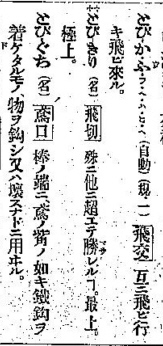 とびかふ (自動) (規一) 飛交 互ニ飛ビ行
キ飛ビ來ル。
とびきり (名) 飛切 殊ニ他ニ超エテ勝レルコ。最上。
極上。
とびぐち (名) 鳶口 棒ノ端ニ、鳶ノ觜ノ如キ鐵鈎ヲ
着ケタルモノ、物ヲ鈎シ又ハ壞スナドニ用ヰル。